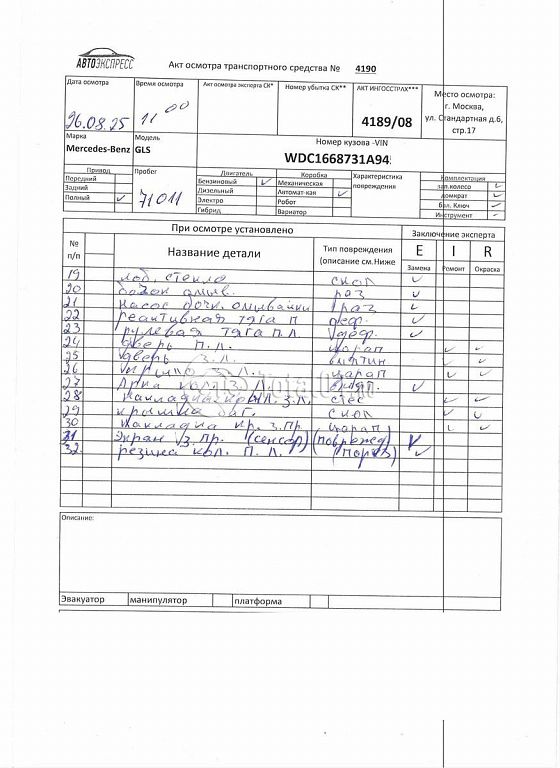 АВТОЭКСПРЕСС
Акт осмотра транспортного средства № 4190
Дата осмотра Время осмотра Акт осмотра эксперта СК* Номер убытка СК** АКТ ИНГОССТРАХ*** Место осмотра:
26.08.25 11 00 4189/08 г. Москва,
ул. Стандартная д.6,
стр.17
Марка Модель Номер кузова -VIN
Mercedes-Benz GLS WDC1668731A94
Привод Пробег Двигатель Коробка Характеристика повреждения Комплектация
Передний 71011 Бензиновый Механическая зап.колесо
Задний Дизельный Автомат-кая домкрат
Полный Электро Робот бал. Ключ
Гибрид Вариатор Инструмент
При осмотре установлено Заключение эксперта
№ п/п Название детали Тип повреждения (описание см.Ниже E I R
Замена Ремонт Окраска
19 лоб. стекло скол
20 бачок омыв. раз
21 насос бочк. омывайки раз
22 реактивная тяга п деф.
23 рулевая тяга п.л. деф.
24 дверь п.л. царап
25 дверь з.л.
26 крыло з.л. царап
27 Арка кол. з.л.
28 накладка з.л.
29 крышка баг. скол
30 накладка кр. з.пр. царап
31 экран з.пр. (сенсор) (поврежд)
32 резина кол. п.л. (порез)
Описание:
Эвакуатор манипулятор платформа